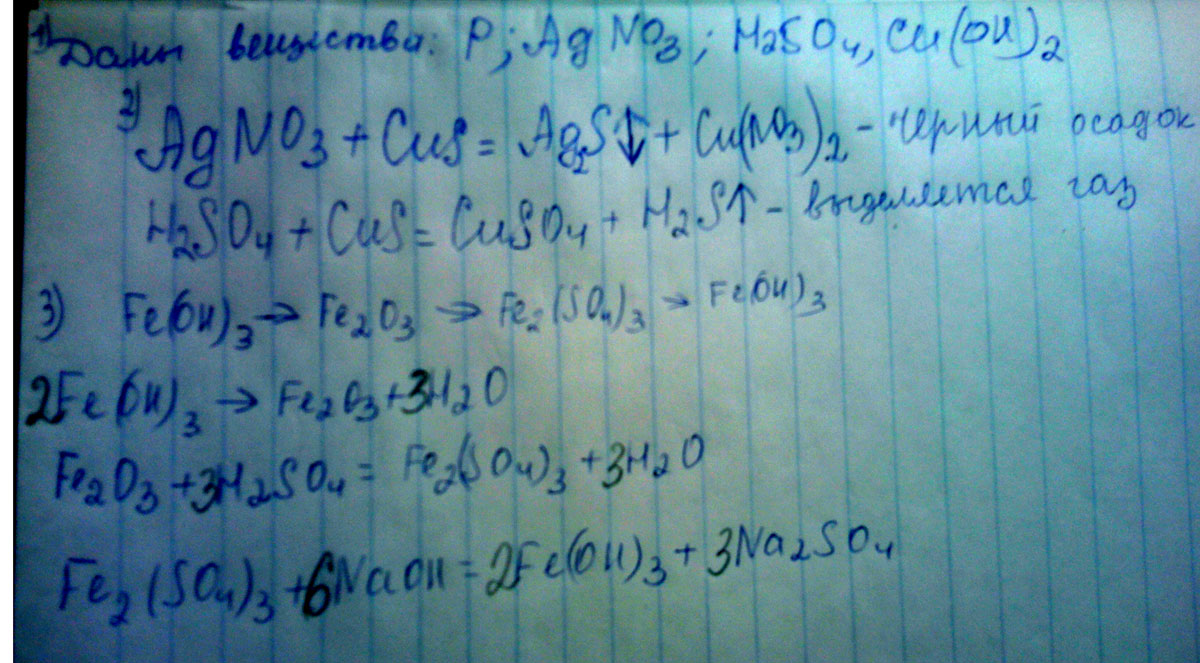 1) Даны вещества: P; AgNO3; H2SO4, Cu(OH)2
2)
AgNO3 + CuS = Ag2S↓ + Cu(NO3)2 - черный осадок
H2SO4 + CuS = CuSO4 + H2S↑ - выделяется газ
3) Fe(OH)3 → Fe2O3 → Fe2(SO4)3 → Fe(OH)3
2Fe(OH)3 → Fe2O3 + 3H2O
Fe2O3 + 3H2SO4 = Fe2(SO4)3 + 3H2O
Fe2(SO4)3 + 6NaOH = 2Fe(OH)3 + 3Na2SO4